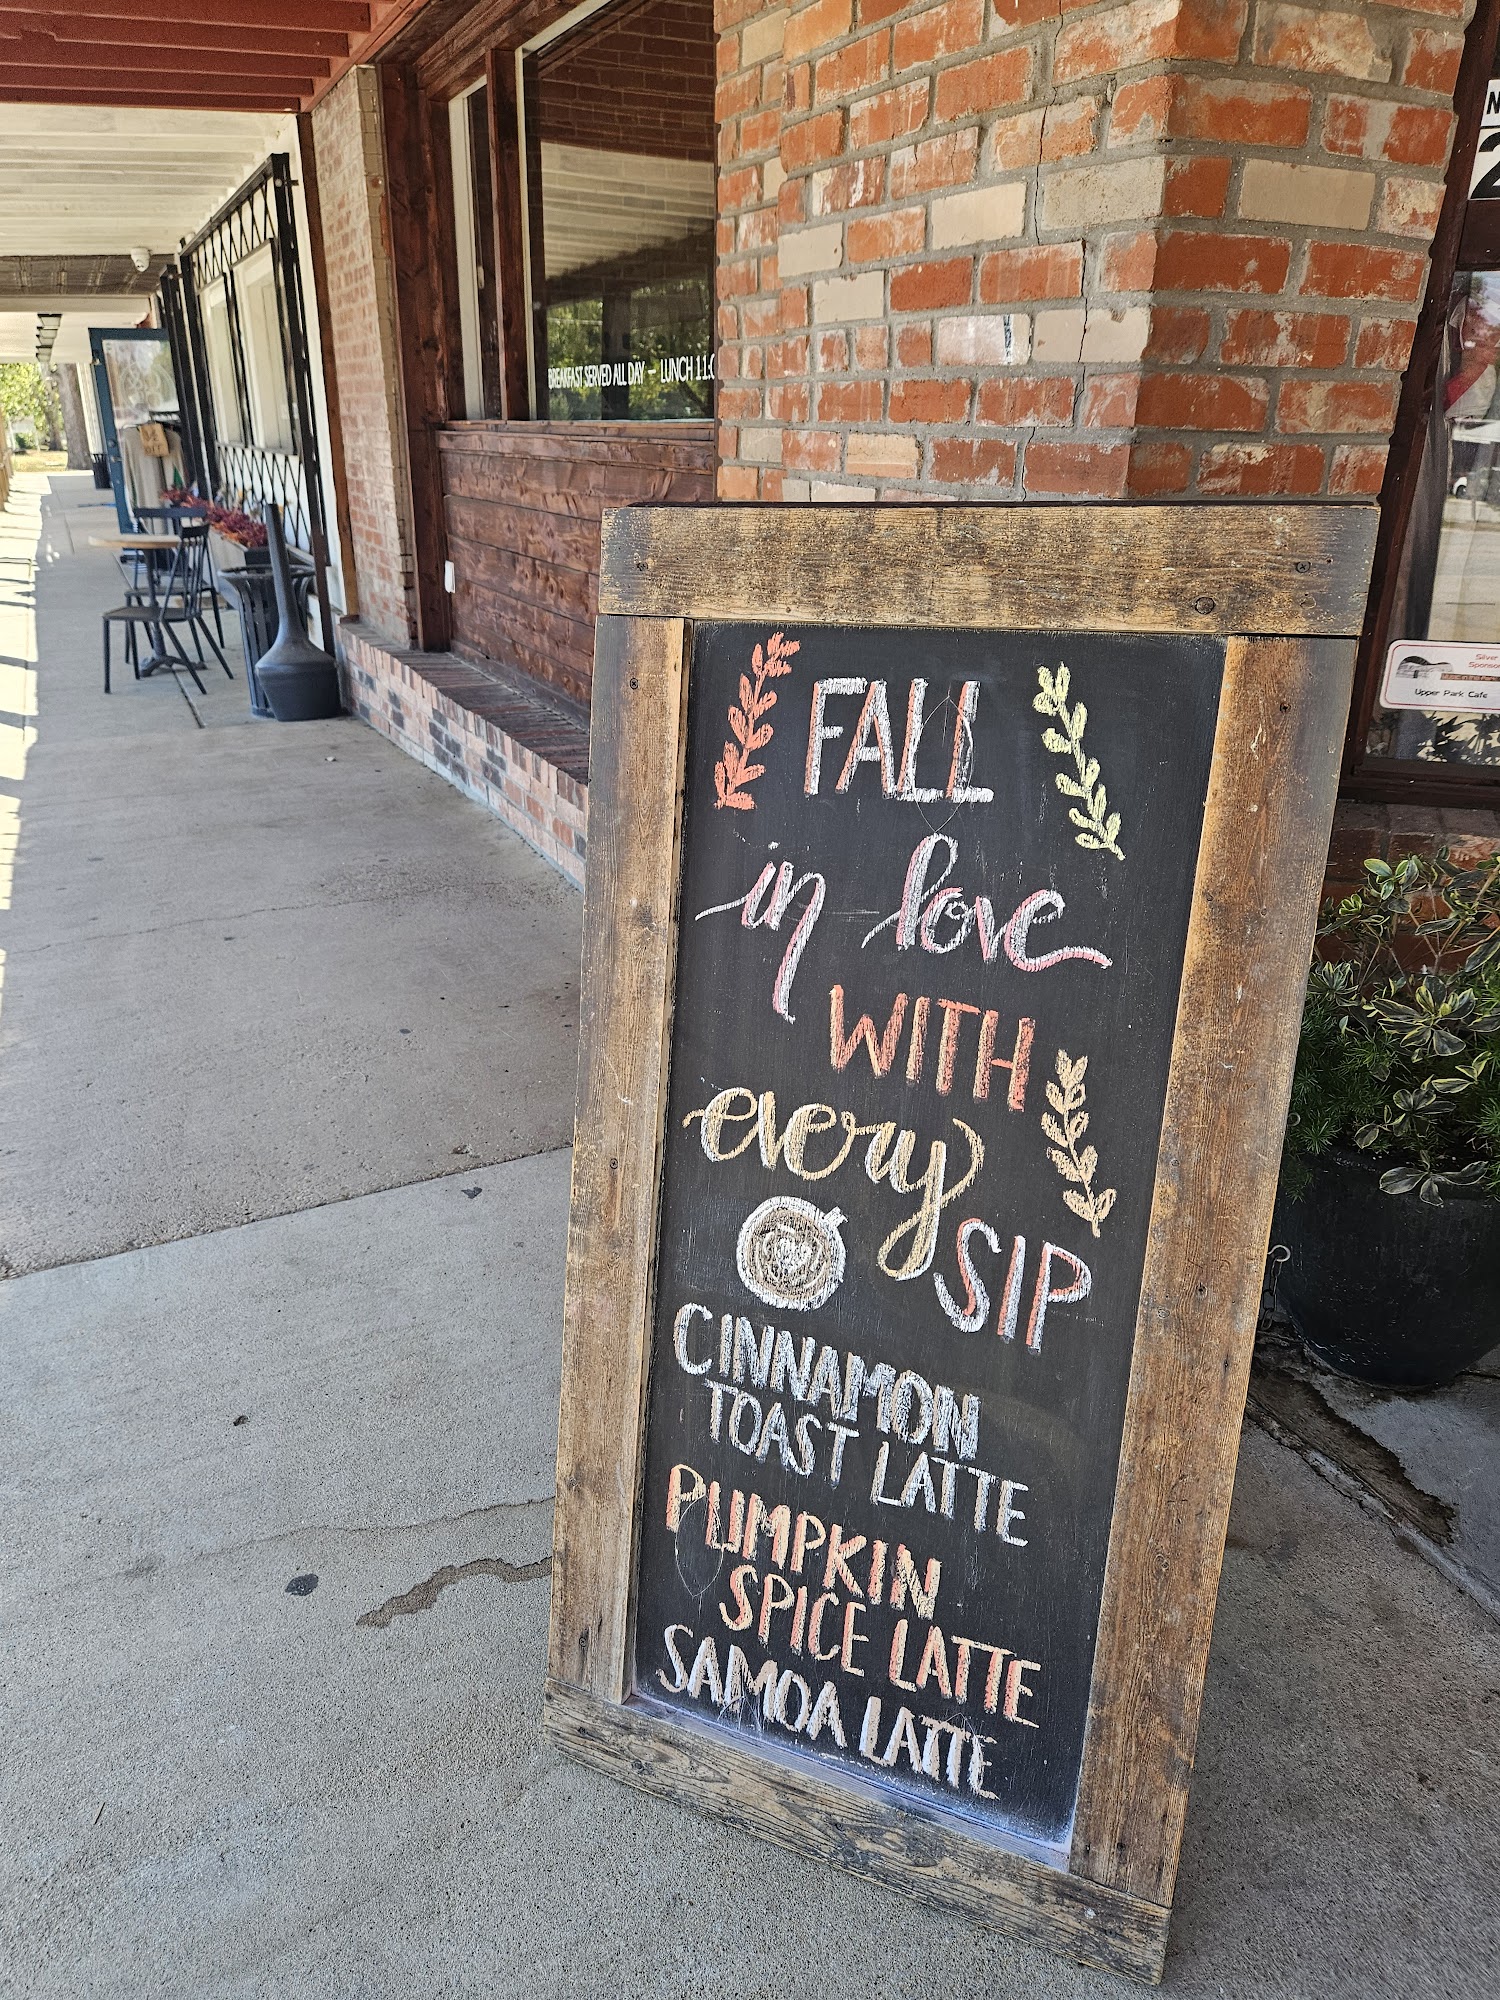 BREAKFAST SERVED ALL DAY - LUNCH 11:0
Silver
Sponsor
Upper Park Cafe
FALL
in love
WITH
every
SIP
CINNAMON
TOAST LATTE
PUMPKIN
SPICE LATTE
SAMOA LATTE